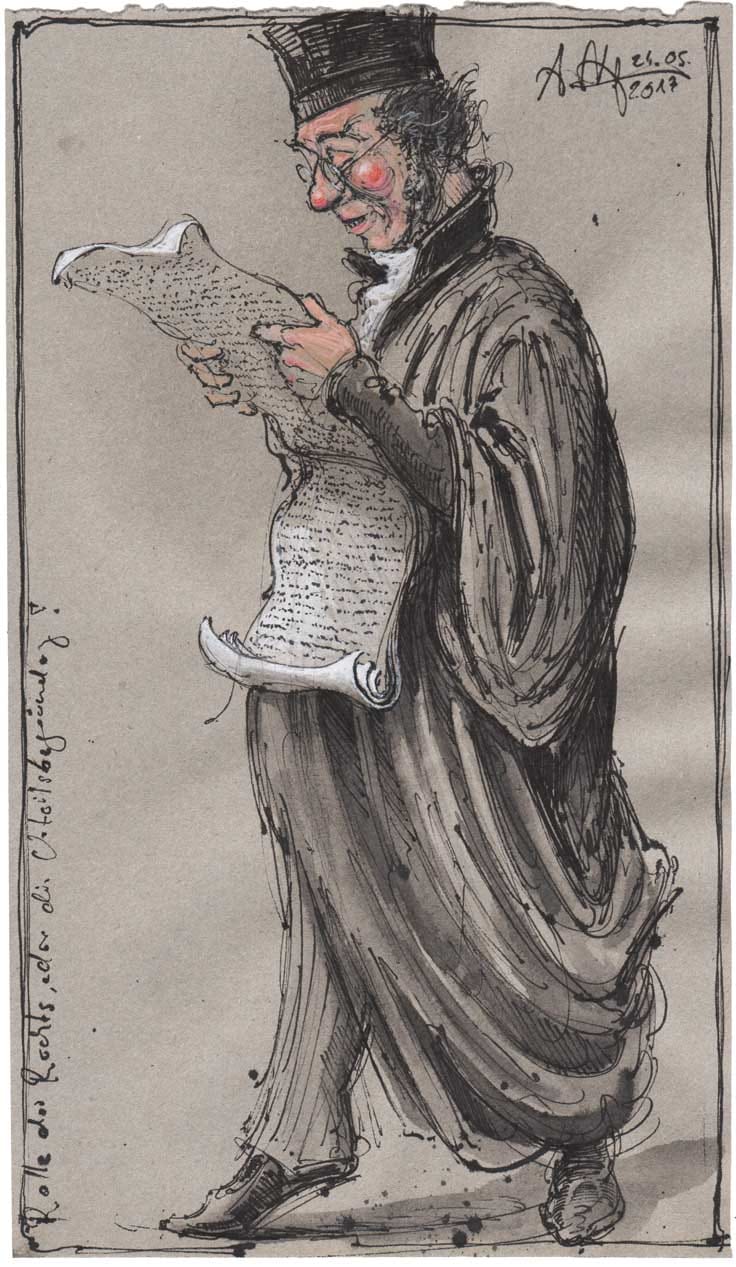 2017
Rolle des Rechts, oder die Urteilsbegründung!